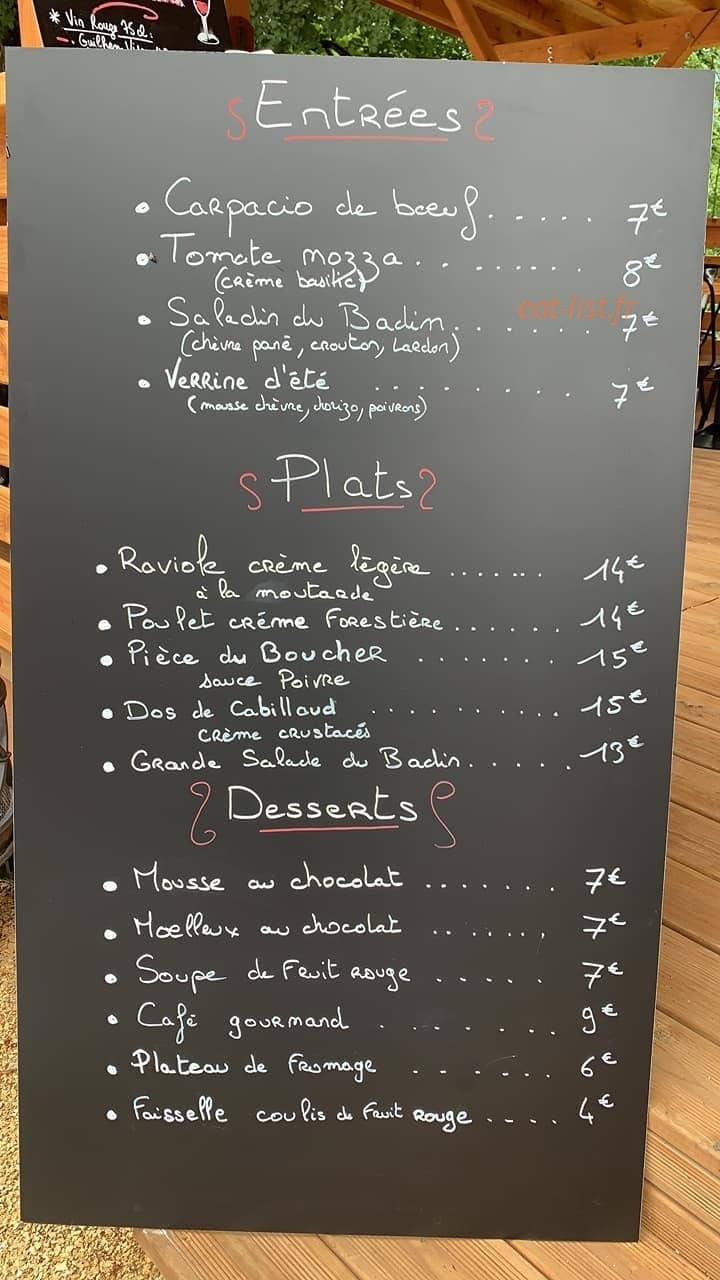 * Vin Rouge 75cl:
Entrées
• Carpacio de bœuf. . . . . . 7€
• Tomate mozza . . . . . . . . . 8€
(crème basilic)
eat-list.fr
• Saladin du Badin. . . . . . . . 7€
(chèvre pané, crouton, lardon)
• Verrine d'été . . . . . . . . . 7€
(mousse chèvre, chorizo, poivrons)
Plats
• Raviole crème légère ....... 14€
à la moutarde
• Poulet créme Forestière. . . . . . 14€
• Pièce du Boucher . . . . . . . 15€
sauce Poivre
• Dos de Cabillaud . . . . . . . . . . 15€
crème crustacés
• Grande Salade du Badin. . . . . . 13€
Desserts
• Mousse au chocolat . . . . . . . 7€
• Moelleux au chocolat . . . . . . . 7€
• Soupe de Fruit Rouge . . . . . 7€
• Café gourmand . . . . . . . 9€
• Plateau de Fromage . . . . . . 6€
• Faisselle coulis de Fruit Rouge . . . . 4€